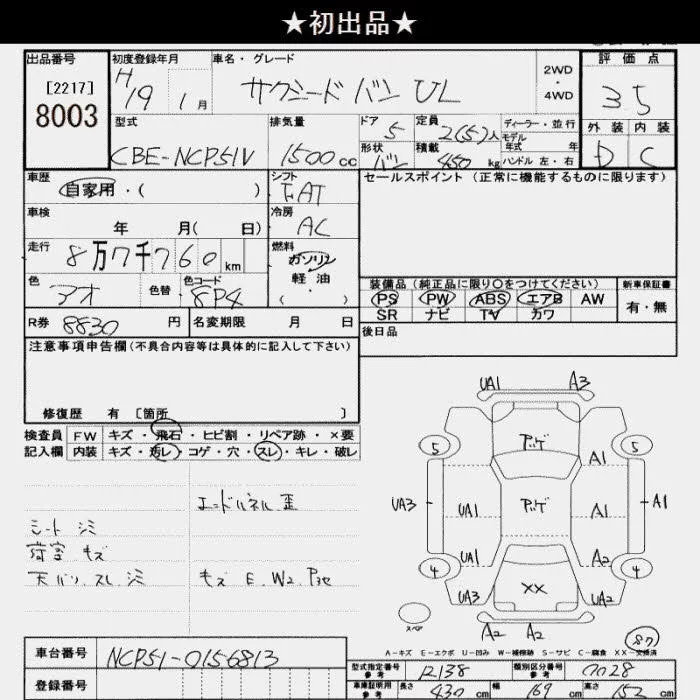 ★初出品★
出品番号 初度登録年月 車名・グレード 2WD・4WD 評価点
[2217]
8003
H19 1月 サクシードバン UL 35
型式 排気量 ドア 5 定員 2(5)人 ディーラー・並行 外装 内装
モデル年式 年
CBE-NCP51V 1500cc 形状 バン 積載 450kg ハンドル 左・右 D C
車歴 自家用・( ) シフト FAT セールスポイント(正常に機能するものに限ります)
車検 年 月( 日) 冷房 AC
走行 8万7千760km 燃料 ガソリン
軽油
・( )
色 アオ 色替 色コード 8P4
装備品(純正品に限り〇をつけてください) 新車保証書
PS PW ABS エアB AW 有・無
SR ナビ TV カワ
R券 8830円 名変期限 月 日 後日品
注意事項申告欄(不具合内容等は具体的に記入して下さい)
修復歴 有 〔箇所 〕
検査員 FW キズ・飛石・ヒビ割・リペア跡・×要
記入欄 内装 キズ・汚レ・コゲ・穴・スレ・キレ・破レ
シート シミ
荷室 キズ
天バリ スレ シミ
キズ E. W2
UA1 A3
5 5
A1
UA3 UA1 A1 A1
UA1 A2
4 4
UA3 XX UA2
スペア
A2 A2
A-キズ E-エクボ U-凹み W-補修跡 S-サビ C-腐食 XX-交換済
車台番号 NCP51-0156813
登録番号
型式指定番号 参考 12138 類別区分番号 参考 0028
車庫証明用 参考 長さ 430cm 幅 169cm 高さ 152cm